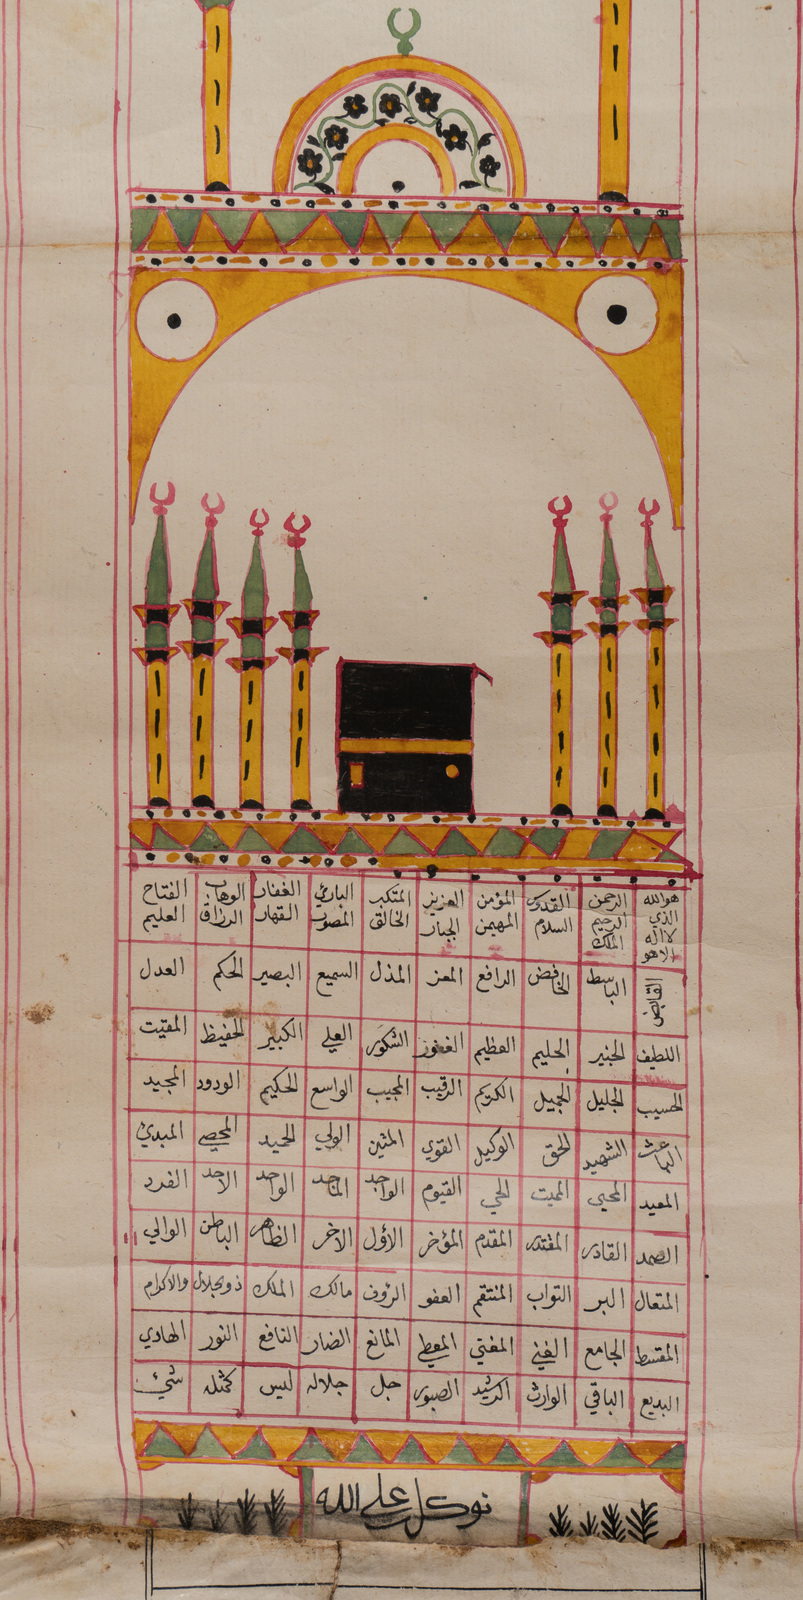 هوالله الذي لااله الاهو الرحمن الرحيم الملك القدوس السلام المؤمن المهيمن العزيز الجبار المتكبر الخالق البارئ المصور الغفار القهار الوهاب الرزاق الفتاح العليم
القابض الباسط الخافض الرافع المعز المذل السميع البصير الحكم العدل
اللطيف الخبير الحليم العظيم الغفور الشكور العلي الكبير الحفيظ المقيت
الحسيب الجليل الجميل الكريم الرقيب المجيب الواسع الحكيم الودود المجيد
الباعث الشهيد الحق الوكيل القوي المتين الولي الحميد المحصي المبدئ
المعيد المحيي المميت الحي القيوم الواجد الماجد الواحد الاحد الفرد
الصمد القادر المقتدر المقدم المؤخر الأول الآخر الظاهر الباطن الوالي
المتعال البر التواب المنتقم العفو الرؤف مالك الملك ذوالجلال والاكرام
المقسط الجامع الغني المغني المعطي المانع الضار النافع النور الهادي
البديع الباقي الوارث الرشيد الصبور جل جلاله ليس كمثله شئ
توكل على الله